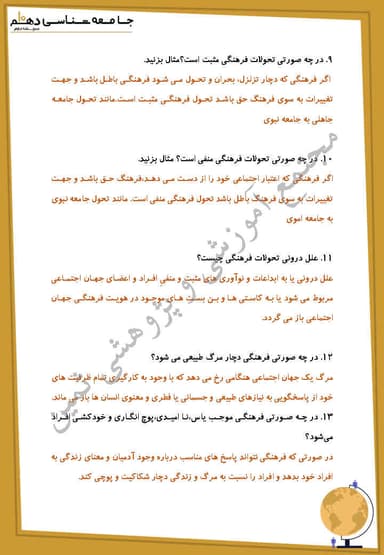 جامعه شناسی دهم
۹. در چه صورتی تحولات فرهنگی مثبت است؟مثال بزنید.
اگر فرهنگی که دچار تزلزل، بحران و تحول می شود فرهنگی باطل باشد و جهت
تغییرات به سوی فرهنگ حق باشد تحول فرهنگی مثبت است.مانند تحول جامعه
جاهلی به جامعه نبوی
۱۰. در چه صورتی تحولات فرهنگی منفی است؟ مثال بزنید.
اگر فرهنگی که اعتبار اجتماعی خود را از دست می دهد،فرهنگ حق باشد و جهت
تغییرات به سوی فرهنگ باطل باشد تحول فرهنگی منفی است. مانند تحول جامعه نبوی
به جامعه اموی
۱۱. علل درونی تحولات فرهنگی چیست؟
علل درونی یا به ابداعات و نوآوری های مثبت و منفی افراد و اعضای جهان اجتماعی
مربوط می شود یا به کاستی ها و بن بست های موجود در هویت فرهنگی جهان
اجتماعی باز می گردد.
۱۲. در چه صورتی فرهنگی دچار مرگ طبیعی می شود؟
مرگ یک جهان اجتماعی هنگامی رخ می دهد که با وجود به کارگیری تمام ظرفیت های
خود از پاسخگویی به نیازهای طبیعی و جسمانی یا فطری و معنوی انسان ها باز می ماند.
۱۳. در چه صورتی فرهنگی موجب یاس،نا امیدی،پوچ انگاری و خودکشی افراد
می‌شود؟
در صورتی که فرهنگی نتواند پاسخ های مناسب درباره وجود آدمیان و معنای زندگی به
افراد خود بدهد و افراد را نسبت به مرگ و زندگی دچار شکاکیت و پوچی کند.
مجتمع آموزشی و پژوهشی